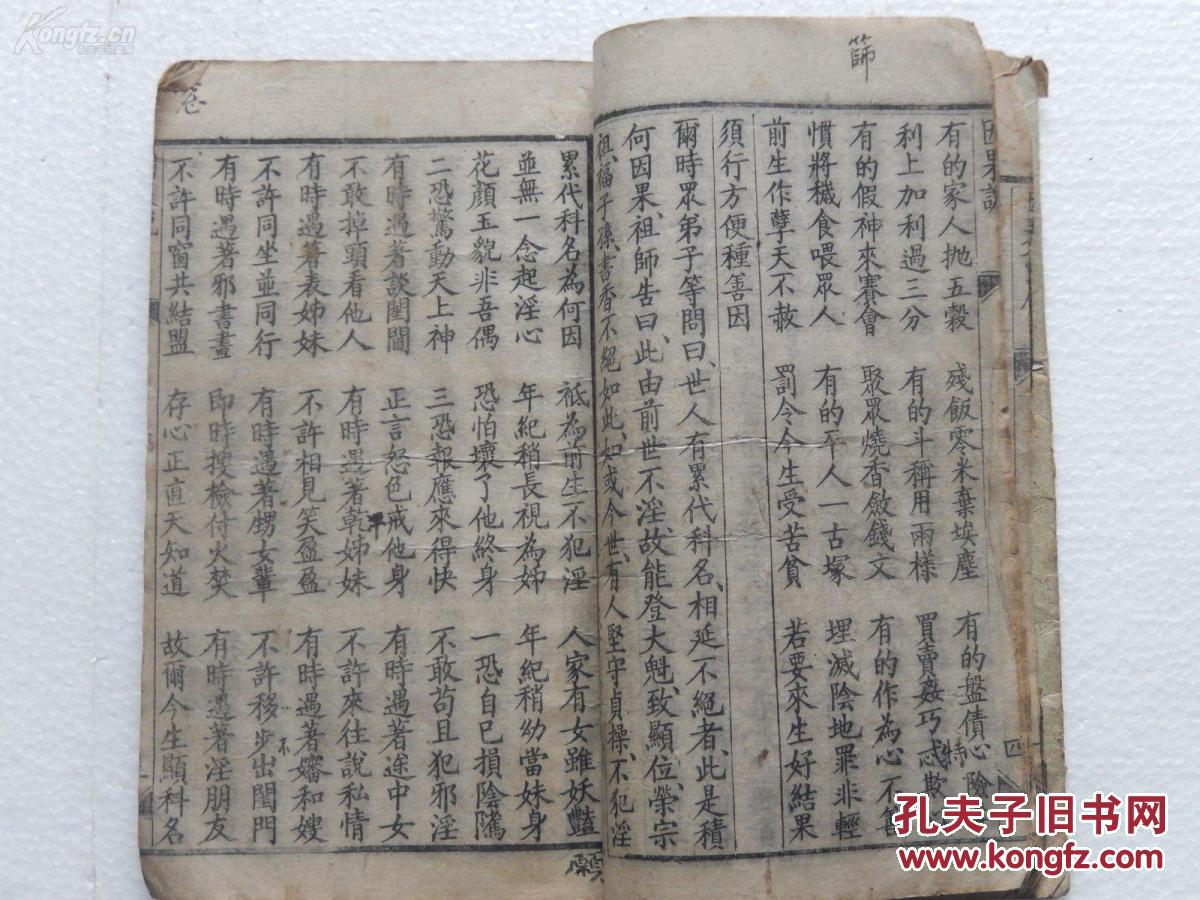 因果說
有的家人拋五穀　殘飯零米棄埃塵　有的盤債心陰
利上加利過三分　有的斗稱用兩樣　買賣姦巧忒欺
有的假神來賽會　聚眾燒香斂錢文　有的作為心不
慣將穢食喂眾人　有的平人一古塚　埋滅陰地罪非輕
前生作孽天不赦　罰令今生受苦貧　若要來生好結果
須行方便種善因
爾時眾弟子等問曰、世人有累代科名、相延不絕者、此是積
何因果、祖師告曰、此由前世不淫、故能登大魁、致顯位、榮宗
祖、福子孫、書香不絕、如此、如或今世、有人堅守貞操、不犯淫
累代科名為何因　祗為前生不犯淫　人家有女雖妖豔
並無一念起淫心　年紀稍長視為姊　年紀稍幼當妹身
花顏玉貌非吾偶　恐怕壞了他終身　一恐自已損陰騭
二恐驚動天上神　三恐報應來得快　不敢苟且犯邪淫
有時遇著談閨閫　正言怒色戒他身　有時遇著途中女
不敢掉頭看他人　有時遇著乾姊妹　不許來往說私情
有時遇著表姊妹　不許相見笑盈盈　有時遇著嬸和嫂
不許同坐並同行　有時遇著甥女輩　不許移步出閨門
有時遇著邪書畫　即時搜檢付火焚　有時遇著淫朋友
不許同窗共結盟　存心正直天知道　故爾今生顯科名
篩
四
Kongfz.cn
孔夫子旧书网
www.kongfz.com